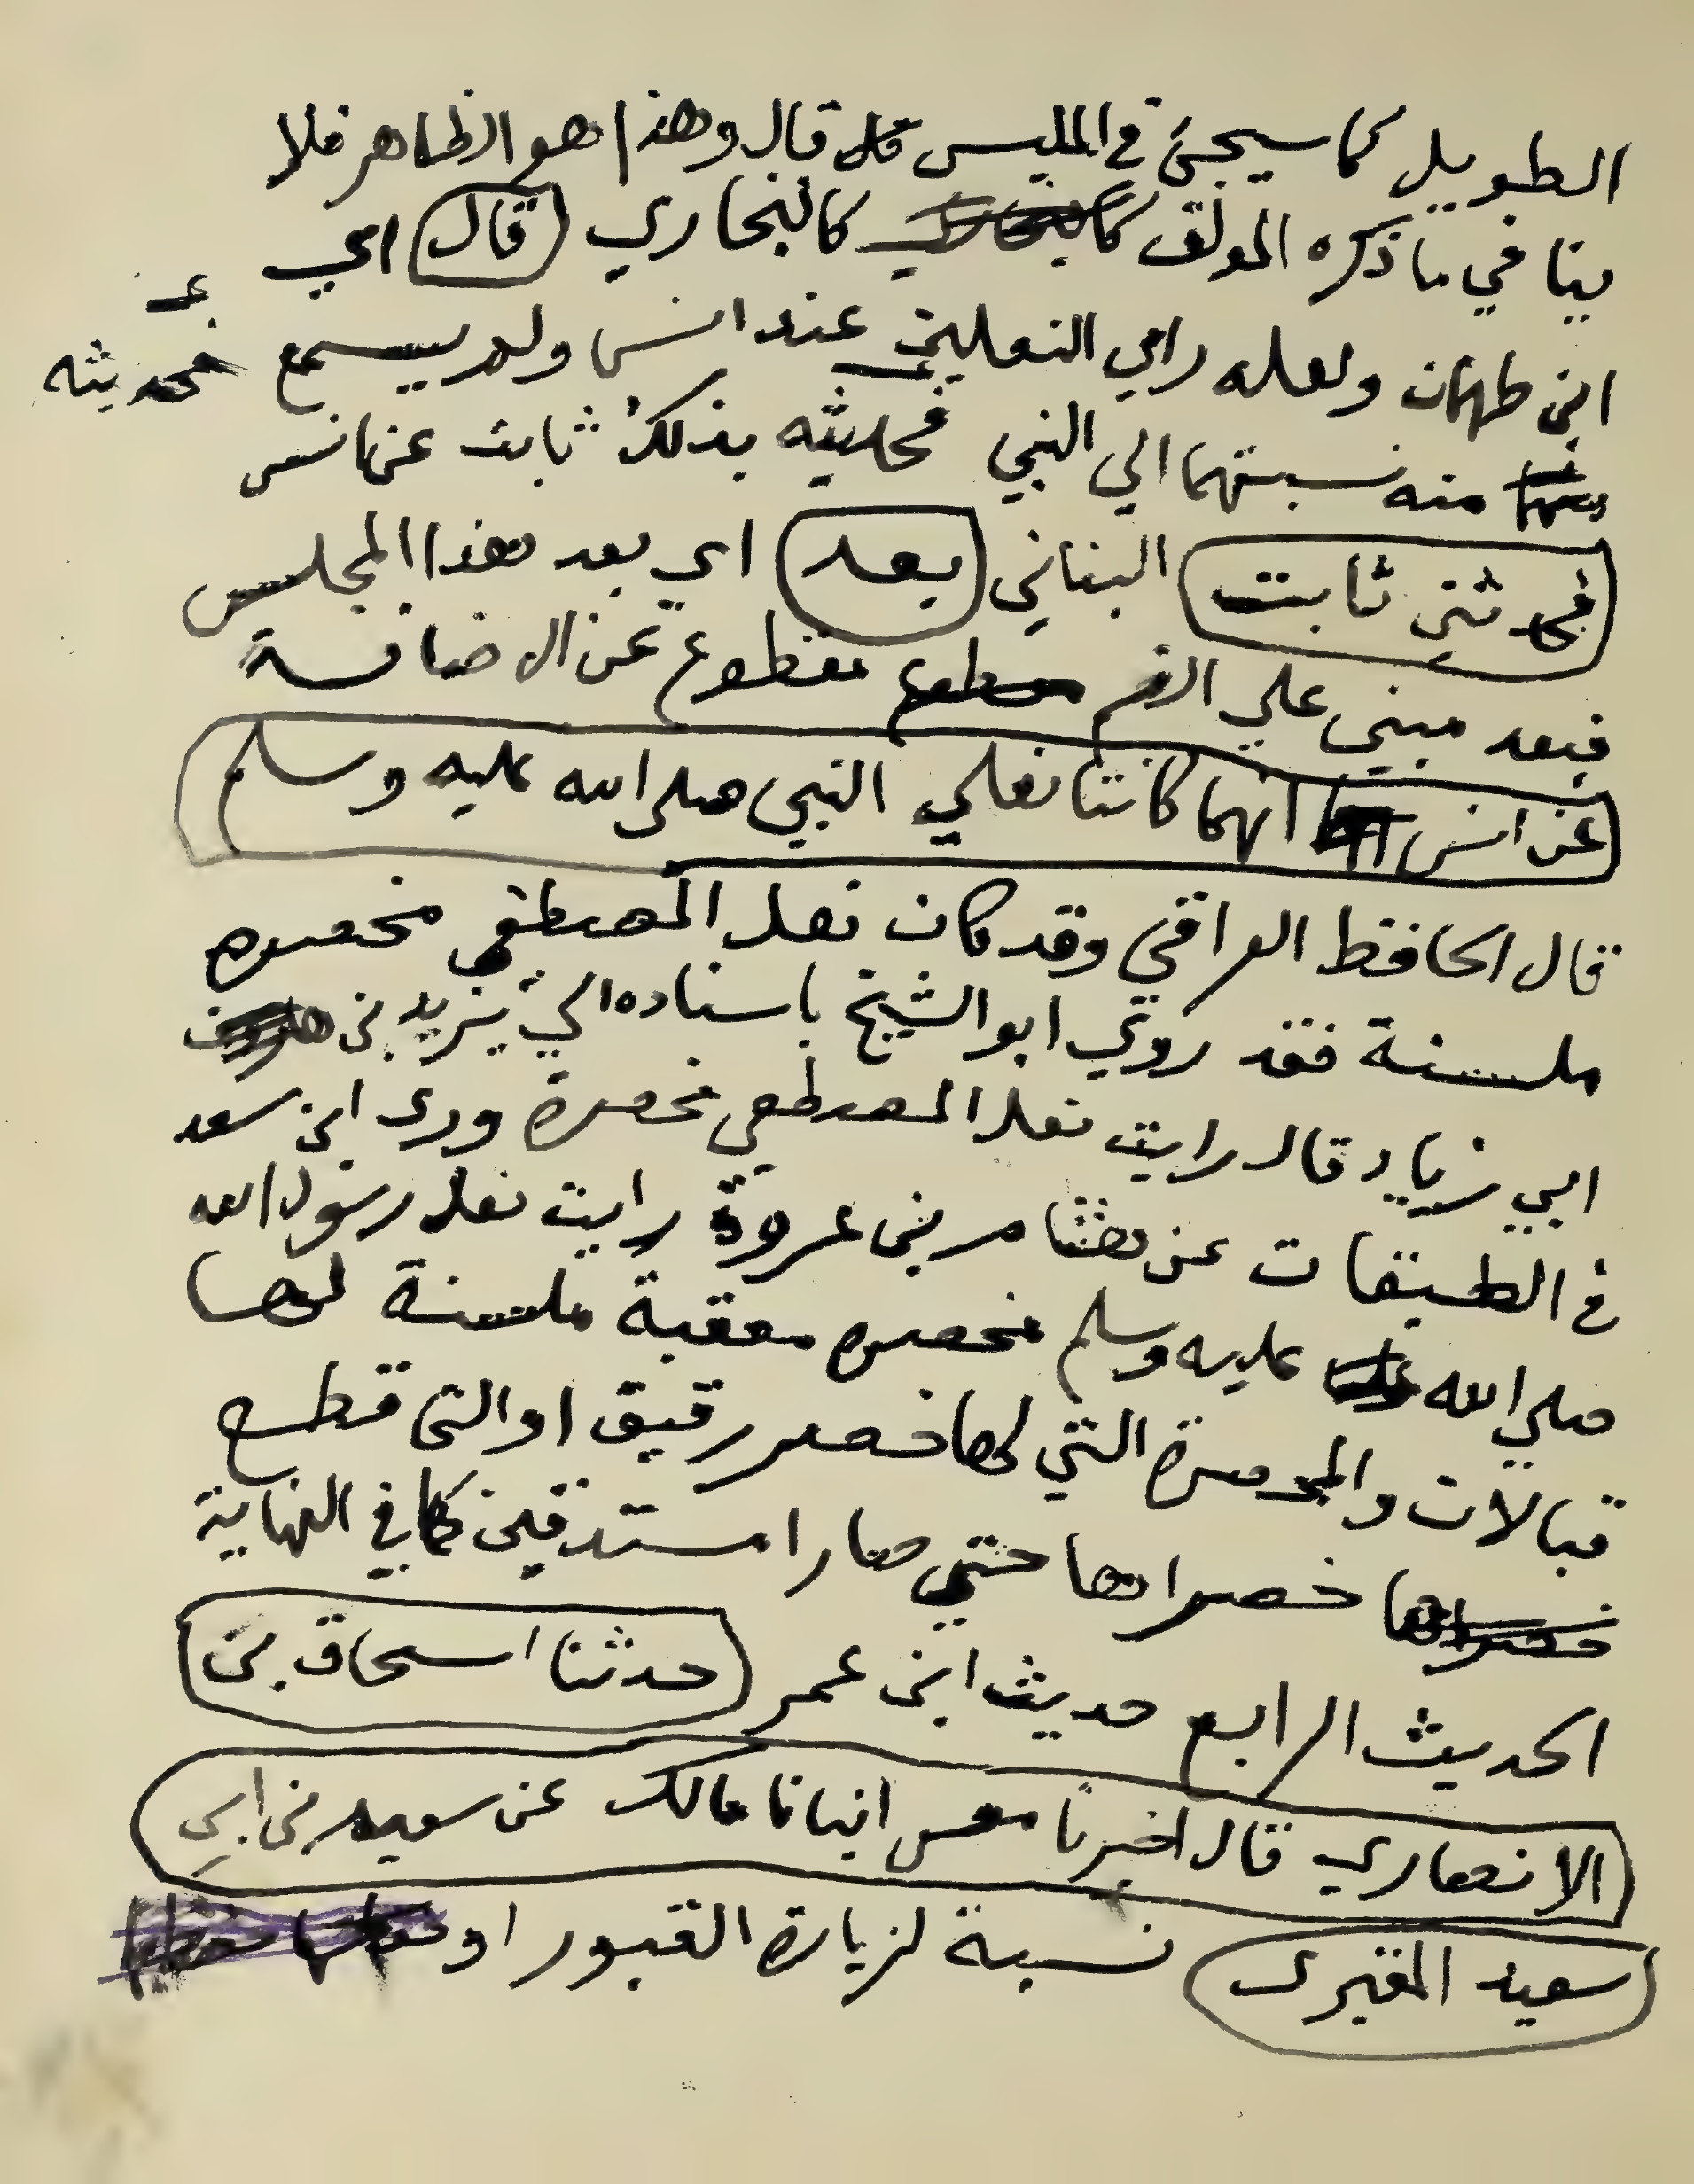 الطويل كما سيجئ في الملبس قال وهذا هو الظاهر فلا
ينافي ما ذكره المولف كالبخاري قال اي
ابن طهمان ولعله راي النعلين عند انس ولم يسمع
منه نسبتهما الي النبي فحديثه بذلك ثابت عن انس
فحدثني ثابت البناني بعد اي بعد هذا المجلس
فبعد مبني علي الضم مقطوع عن الاضافة
عن انس انهما كانتا نعلي النبي صلى الله عليه وسلم
قال الحافظ العراقي وقد كان نعل المصطفي مخصره
ملسنة فقد روي ابو الشيخ باسناده الي يزيد بن
ابي زياد قال رايت نعل المصطفي مخصرة وروى ابن سعد
في الطبقات عن هشام بن عروة رايت نعل رسول الله
صلي الله عليه وسلم مخصره معقبة ملسنة لها
قبالان والمخصرة التي لها خصر رقيق او التي قطع
خصراها حتي صارا مستدقين كما في النهاية
الحديث الرابع حديث ابن عمر حدثنا اسحاق بن
الانصاري قال اخبرنا معن انبانا مالك عن سعيد بن ابي
سعيد المقبري نسبة لزيارة القبور او